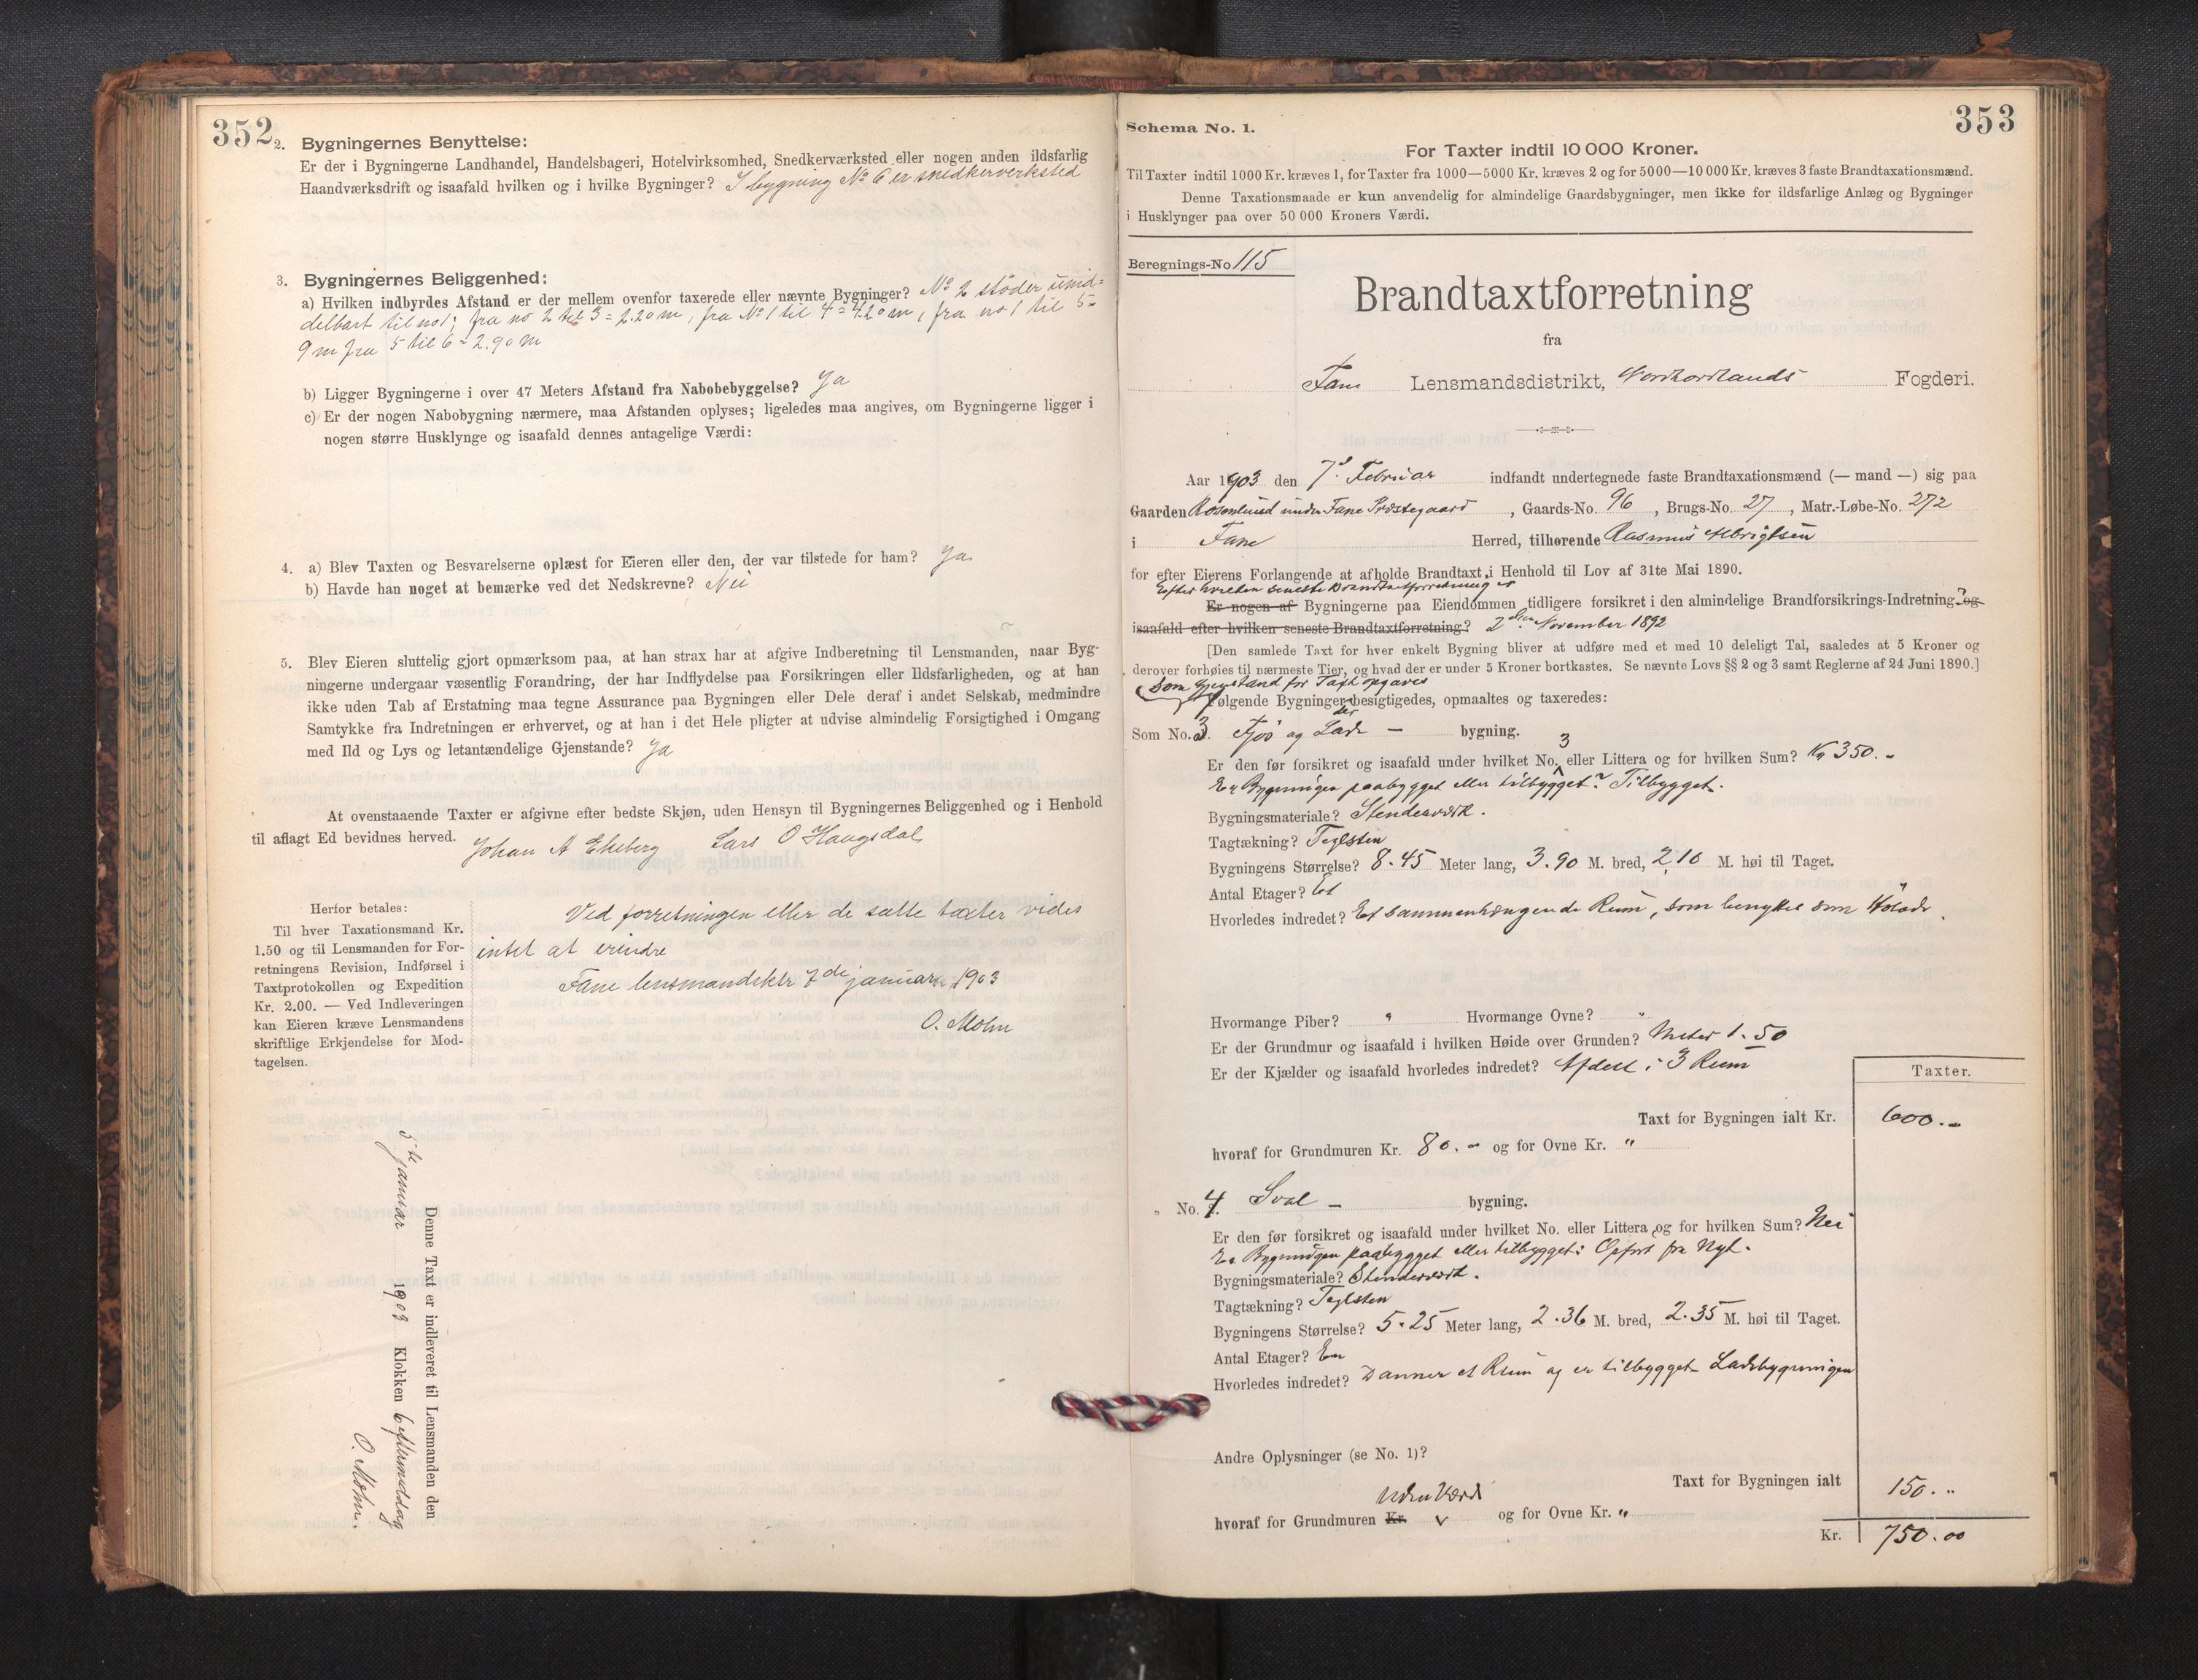 352
2. Bygningernes Benyttelse:
Er der i Bygningerne Landhandel, Handelsbageri, Hotelvirksomhed, Snedkerværksted eller nogen anden ildsfarlig
Haandværksdrift og isaafald hvilken og i hvilke Bygninger? I bygning No 6 er snedkerverksted
3. Bygningernes Beliggenhed:
a) Hvilken indbyrdes Afstand er der mellem ovenfor taxerede eller nævnte Bygninger? No 2 støder umid-
delbart til no 1; fra no 2 til 3 = 2.20 m, fra No 1 til 4 = 4.20 m, fra no 1 til 5 =
9 m fra 5 til 6 = 2.90 m
b) Ligger Bygningerne i over 47 Meters Afstand fra Nabobebyggelse? Ja
c) Er der nogen Nabobygning nærmere, maa Afstanden oplyses; ligeledes maa angives, om Bygningerne ligger i
nogen større Husklynge og isaafald dennes antagelige Værdi:
4. a) Blev Taxten og Besvarelserne oplæst for Eieren eller den, der var tilstede for ham? Ja
b) Havde han noget at bemærke ved det Nedskrevne? Nei
5. Blev Eieren sluttelig gjort opmærksom paa, at han strax har at afgive Indberetning til Lensmanden, naar Byg-
ningerne undergaar væsentlig Forandring, der har Indflydelse paa Forsikringen eller Ildsfarligheden, og at han
ikke uden Tab af Erstatning maa tegne Assurance paa Bygningen eller Dele deraf i andet Selskab, medmindre
Samtykke fra Indretningen er erhvervet, og at han i det Hele pligter at udvise almindelig Forsigtighed i Omgang
med Ild og Lys og letantændelige Gjenstande? Ja
At ovenstaaende Taxter er afgivne efter bedste Skjøn, uden Hensyn til Bygningernes Beliggenhed og i Henhold
til aflagt Ed bevidnes herved. Johan A Ekeberg Lars O Haugsdal
Herfor betales:
Til hver Taxationsmand Kr.
1.50 og til Lensmanden for For-
retningens Revision, Indførsel i
Taxtprotokollen og Expedition
Kr. 2.00. — Ved Indleveringen
kan Eieren kræve Lensmandens
skriftlige Erkjendelse for Mod-
tagelsen.
Ved forretningen eller de satte taxter vides
intet at erindre
Fane lensmandsktr 7de januar 1903
O. Mohn
Denne Taxt er indleveret til Lensmanden den
5te Januar 1903 Klokken 6 eftermiddag
O. Mohn.
353
Schema No. 1.
For Taxter indtil 10 000 Kroner.
Til Taxter indtil 1000 Kr. kræves 1, for Taxter fra 1000—5000 Kr. kræves 2 og for 5000—10 000 Kr. kræves 3 faste Brandtaxationsmænd.
Denne Taxationsmaade er kun anvendelig for almindelige Gaardsbygninger, men ikke for ildsfarlige Anlæg og Bygninger
i Husklynger paa over 50 000 Kroners Værdi.
Beregnings-No 115
Brandtaxtforretning
fra
Fane Lensmandsdistrikt, Nordhordlands Fogderi.
Aar 1903 den 7de Februar indfandt undertegnede faste Brandtaxationsmænd (— mand —) sig paa
Gaarden Rosenlund under Fane Præstegaard, Gaards-No. 96, Brugs-No. 27, Matr.-Løbe-No. 272
i Fane Herred, tilhørende Rasmus Albrigtsen
for efter Eierens Forlangende at afholde Brandtaxt i Henhold til Lov af 31te Mai 1890.
Efter hvilken seneste Brandtaxtforretning er
Er nogen af Bygningerne paa Eiendommen tidligere forsikret i den almindelige Brandforsikrings-Indretning? og
isaafald efter hvilken seneste Brandtaxtforretning? 2den November 1892
[Den samlede Taxt for hver enkelt Bygning bliver at udføre med et med 10 deleligt Tal, saaledes at 5 Kroner og
derover forhøies til nærmeste Tier, og hvad der er under 5 Kroner bortkastes. Se nævnte Lovs §§ 2 og 3 samt Reglerne af 24 Juni 1890.]
Som Gjenstand for Taxt opgaves
følgende Bygninger der besigtigedes, opmaaltes og taxeredes:
Som No. 3. Fjøs og Lade — bygning.
Er den før forsikret og isaafald under hvilket No. 3 eller Littera og for hvilken Sum? Kr 350.-
Er Bygningen paabygget eller tilbygget? Tilbygget.
Bygningsmateriale? Stenderværk.
Tagtækning? Teglsten
Bygningens Størrelse? 8.45 Meter lang, 3.90 M. bred, 2,10 M. høi til Taget.
Antal Etager? Et
Hvorledes indredet? Et sammenhængende Rum, som benyttes som Hølade.
Hvormange Piber? " Hvormange Ovne? "
Er der Grundmur og isaafald i hvilken Høide over Grunden? Meter 1.50
Er der Kjælder og isaafald hvorledes indredet? Afdelt i 3 Rum
Taxter.
Taxt for Bygningen ialt Kr. 600.-
hvoraf for Grundmuren Kr. 80.- og for Ovne Kr. "
" No. 4. Sval — bygning.
Er den før forsikret og isaafald under hvilket No. eller Littera og for hvilken Sum? Nei
Er Bygningen paabygget eller tilbygget? Opført fra Nyt.
Bygningsmateriale? Stenderværk.
Tagtækning? Teglsten
Bygningens Størrelse? 5.25 Meter lang, 2.36 M. bred, 2.35 M. høi til Taget.
Antal Etager? En
Hvorledes indredet? Danner et Rum og er tilbygget Ladebygningen
Andre Oplysninger (se No. 1)?
Taxt for Bygningen ialt 150. "
Uden Værdi
hvoraf for Grundmuren Kr. og for Ovne Kr. "
Kr. 750.00